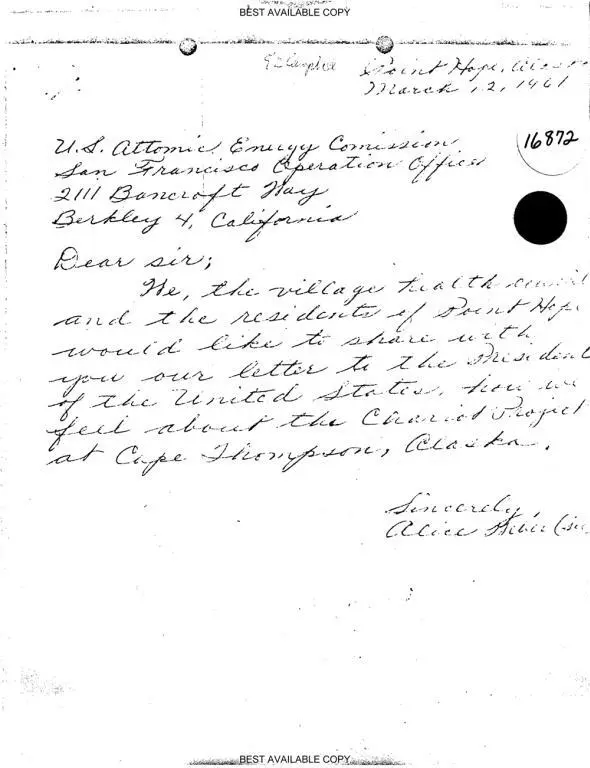 BEST AVAILABLE COPY
Point Hope,
March 12, 1961
16872
U.S. Attomic Energy Comission
San Francisco Operation Office
2111 Bancroft Way
Berkley 4, California
Dear sir;
We, the village health council
and the residents of Point Hope
would like to share with
you our letter to the President
of the United States, how we
feel about the Chariot Project
at Cape Thompson, Alaska.
Sincerely,
Alice
BEST AVAILABLE COPY